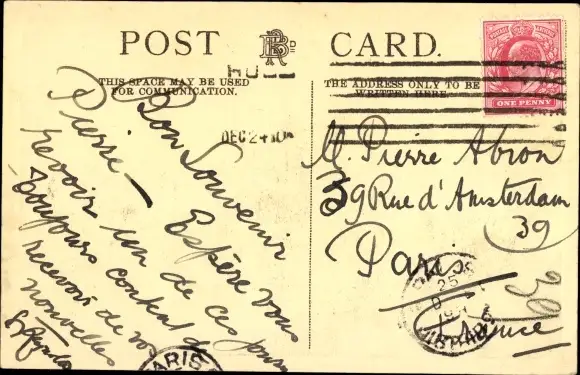 POST CARD.
THIS SPACE MAY BE USED
FOR COMMUNICATION.
THE ADDRESS ONLY TO BE
WRITTEN HERE
ONE PENNY
HULL
DEC 24
Bon Souvenir
Pierre — Espère vous
revoir un de ces jours
Toujours content de
recevoir de vos
nouvelles
M. Pierre Abron
39 Rue d'Amsterdam
39
Paris
France
PARIS
25